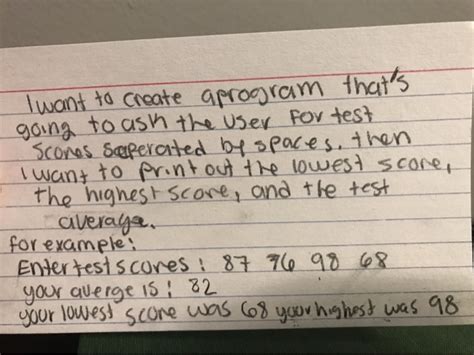 I want to create a program that's
going to ask the user for test
scores seperated by spaces. then
I want to print out the lowest score,
the highest score, and the test
average.
for example:
Enter test scores : 87 76 98 68
your averge is : 82
your lowest score was 68 your highest was 98